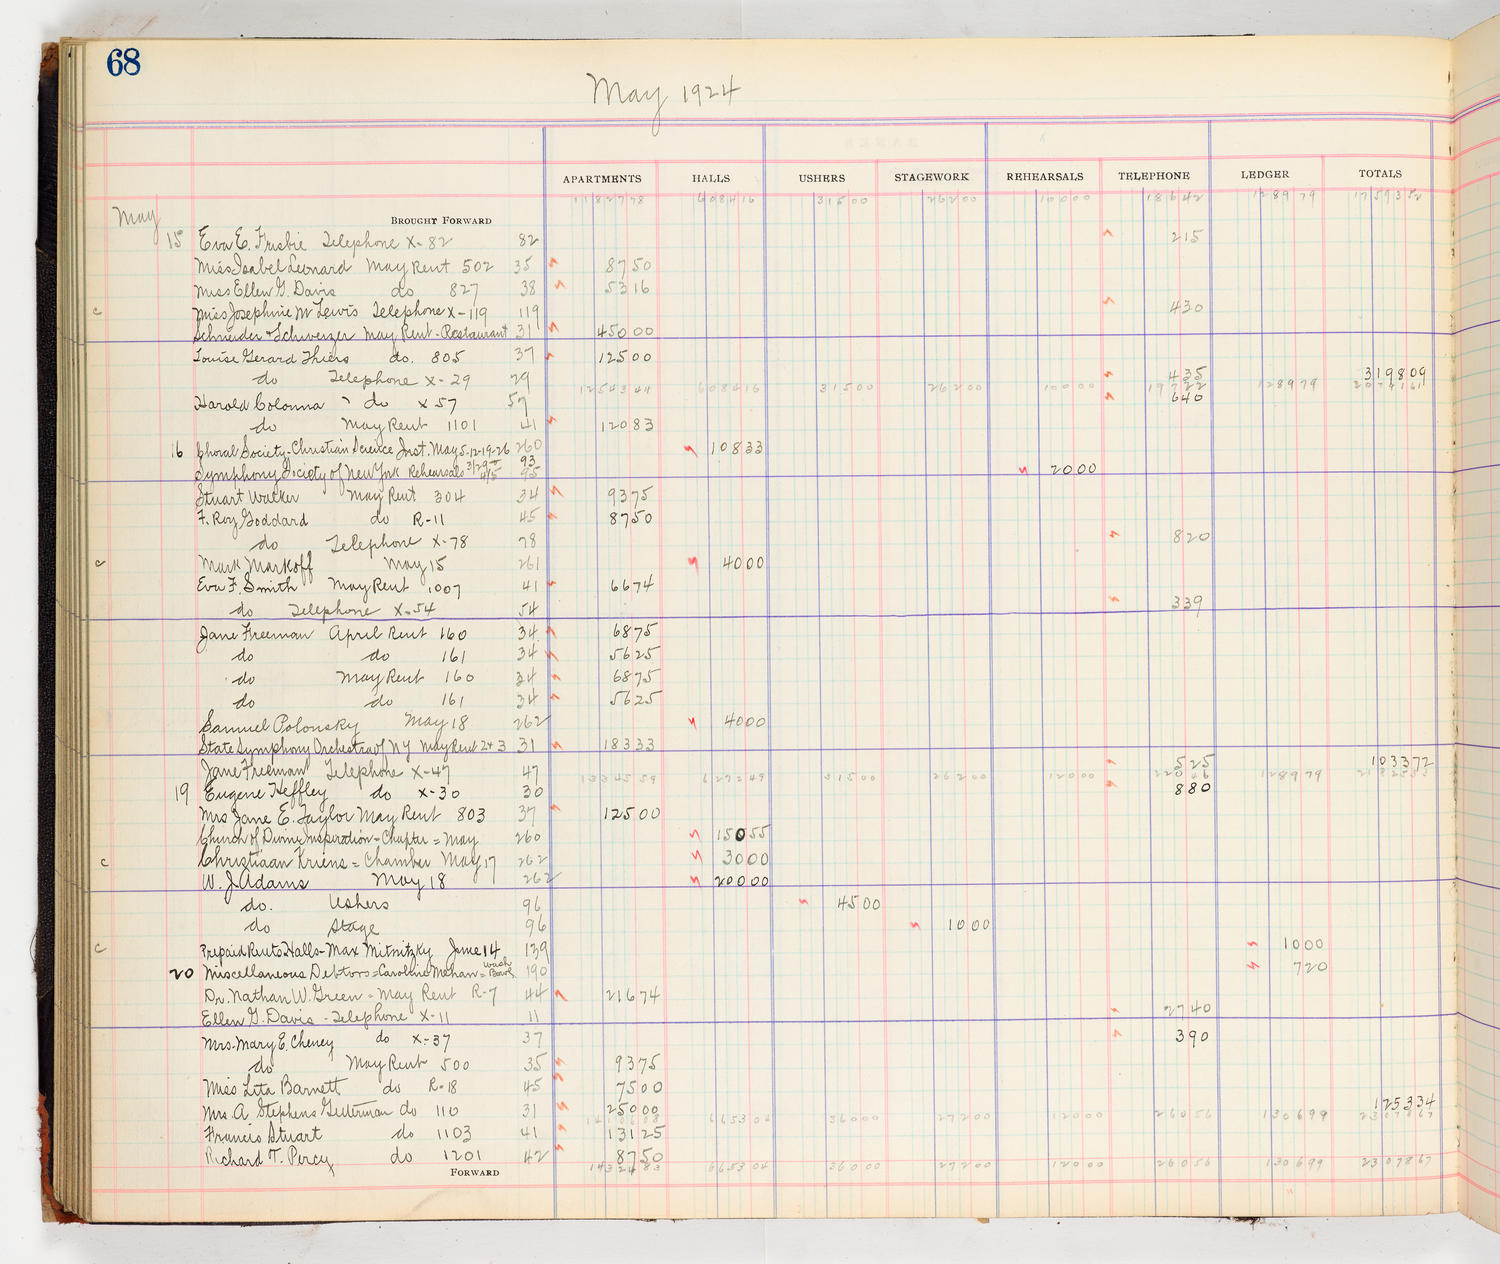 68
May 1924
APARTMENTS HALLS USHERS STAGEWORK REHEARSALS TELEPHONE LEDGER TOTALS
BROUGHT FORWARD 1182778 608416 31500 26200 10000 18642 128979
May
15 Eva E. Frisbie Telephone X-82 82 215
Miss Isabel Leonard May Rent 502 35 8750
Miss Ellen G. Davis do 827 38 5316
c Miss Josephine M Lewis Telephone X-119 119 430
Schneider & Schwerzer May Rent-Restaurant 31 45000
Louise Gerard Thiers do. 805 37 12500
do Telephone X-29 29 435 319809
1254344 608416 31500 26200 10000 19722 128979
Harold Colonna do X57 57 640
do May Rent 1101 41 12083
16 Choral Society-Christian Science Inst. May 5-12-19-26 260 10833
Symphony Society of New York Rehearsals 3/29 + 4/5 93 95 2000
Stuart Walker May Rent 304 34 9375
F. Roy Goddard do R-11 45 8750
do Telephone X-78 78 820
c Mark Markoff May 15 261 4000
Eva F. Smith May Rent 1007 41 6674
do Telephone X-54 54 339
Jane Freeman April Rent 160 34 6875
do do 161 34 5625
do May Rent 160 34 6875
do do 161 34 5625
Samuel Polonsky May 18 262 4000
State Symphony Orchestra of NY May Rent 2+3 31 18333
Jane Freeman Telephone X-47 47 525 103372
1334559 627249 31500 26200 12000 128979
19 Eugene Heffley do X-30 30 880
Mrs Jane E. Taylor May Rent 803 37 12500
Church of Divine Inspiration-Chapter = May 260 15055
c Christiaan Kriens = Chamber May 17 262 3000
W. J. Adams May 18 262 20000
do. Ushers 96 4500
do Stage 96 1000
c Prepaid Rents Halls-Max Mitnitzky June 14 139 1000
20 Miscellaneous Debtors=Caroline Mehan= Wash Bowl 190 720
Dr. Nathan W. Green = May Rent R-7 44 21674
Ellen G. Davis - Telephone X-11 11 2740
Mrs. Mary E. Cheney do X-37 37 390
do May Rent 500 35 9375
Miss Lita Barnett do R-18 45 7500
Mrs. A Stephens Guterman do 110 31 25000 125334
665304 36000 27200 12000 26056 130699 2307867
Francis Stuart do 1103 41 13125
Richard T. Percy do 1201 42 8750
FORWARD 1432483 665304 36000 27200 12000 26056 130699 2307867